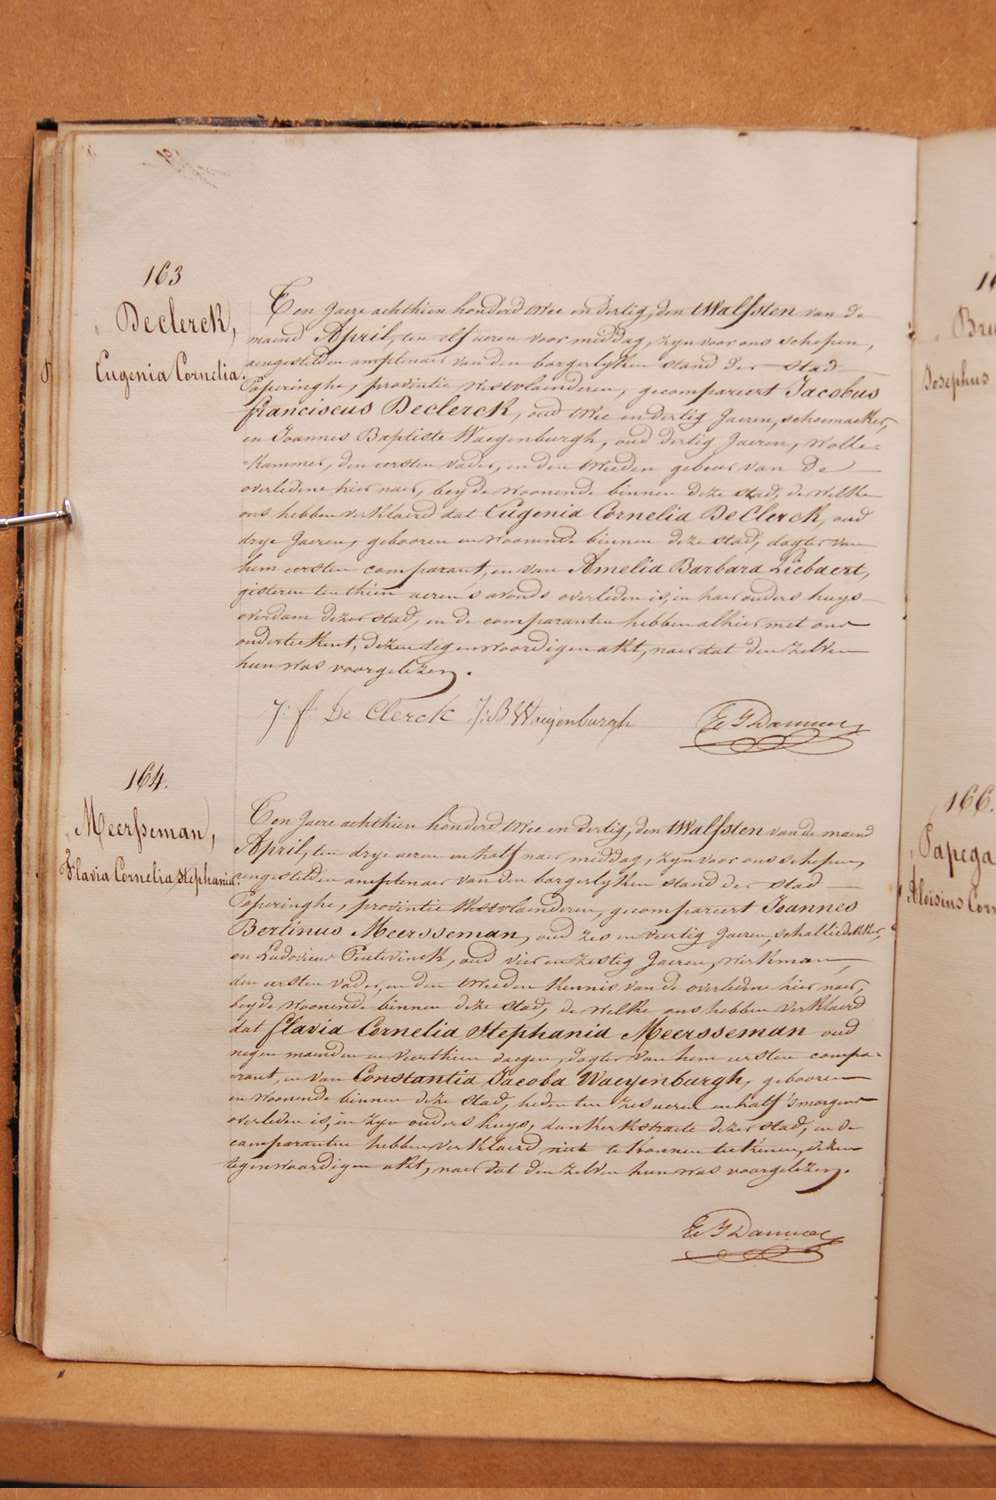 163
Declerck,
Eugenia Cornelia.
Ten Jaere achthien honderd twee en dertig, den twalfsten van de
maend April, ten elf ueren voor middag, zyn voor ons schepen,
aengestelden amptenaer van den borgerlyken stand der stad
Poperinghe, provintie Westvlaenderen, gecompareert Jacobus
franciscus Declerck, oud twee en dertig Jaeren, schoemaeker,
en Joannes Baptiste Waeyenburgh, oud dertig Jaeren, wolle-
-kammer, den eersten vader, en den tweeden gebuer van de
overledene hier naer, beyde woonende binnen deze stad, de welke
ons hebben verklaerd dat Eugenia Cornelia DeClerck, oud
drye Jaeren, gebooren en woonende binnen deze stad, dogter van
hem eersten comparant, en van Amelia Barbara Liebaert,
gisteren ten thien ueren s avonds overleden is, in haer ouders huys
overdam dezer stad, en de comparanten hebben alhier met ons
onderteekent, dezen tegenwoordigen akt, naer dat den zelven
hun was voorgelezen.
J: f: De Clerck J: B Waeyenburgh
164.
Meersseman,
Flavia Cornelia Stephania.
Ten Jaere achthien honderd twee en dertig, den twalfsten van de maend
April, ten drye ueren en half naer middag, zyn voor ons schepen,
aengestelden amptenaer van den borgerlyken stand der stad
Poperinghe, provintie Westvlaenderen, gecompareert Joannes
Bertinus Meersseman, oud zes en viertig Jaeren, schalliedekker,
en Ludovicus oud vier en zestig Jaeren, werkman,
den eersten vader, en den tweeden kennis van de overledene hier naer,
beyde woonende binnen deze stad, de welke ons hebben verklaerd
dat flavia Cornelia Stephania Meersseman oud
negen maenden en veerthien daegen, dogter van hem eersten compa-
rant, en van Constantia Jacoba Waeyenburgh, gebooren
en woonende binnen deze stad, heden ten zes ueren en half 's morgens
overleden is, in zyn ouders huys, dunkerkstraete dezer stad, en de
comparanten hebben verklaerd niet te konnen teekenen, dezen
tegenwoordigen akt, naer dat den zelven hun was voorgelezen.
Josephus
166.
Papega
Aloisius Corn